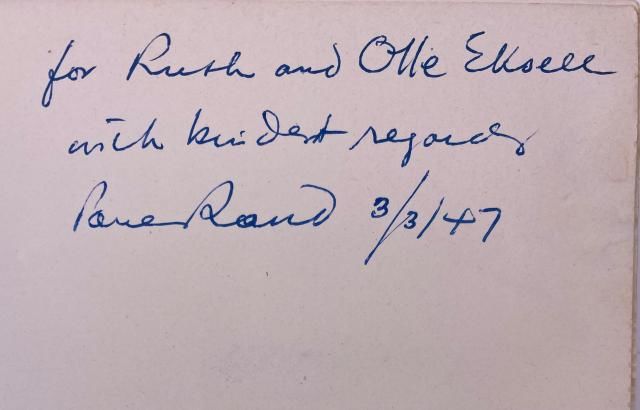 for Ruth and Olle Eksell
with kindest regards
Paul Rand 3/3/47